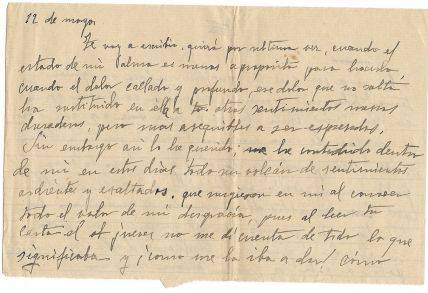 12 de mayo.
Te voy a escribir, quizá por última vez, cuando el
estado de mi alma es menos a propósito para hacerlo,
cuando el dolor callado y profundo, ese dolor que no
ha sustituido en ella a los otros sentimientos menos
duraderos, pero mas asequibles a ser expresados.
Sin embargo así lo he querido, he contenido dentro
de mí en estos días todo un volcán de sentimientos
ardientes y exaltados, que surgieron en mí al conocer
todo el valor de mi desgracia, pues al leer tu
carta el jueves no me dí cuenta de todo lo que
significaba y ¡como me la iba a dar! cómo